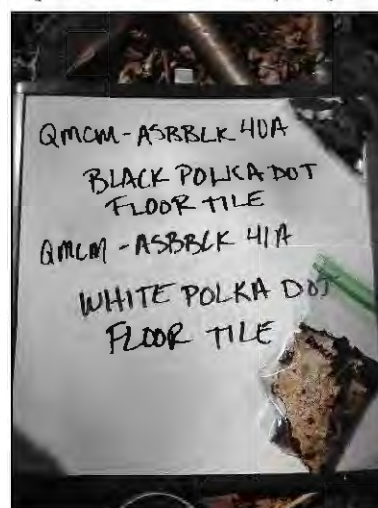 QMCM-ASBBLK 40A
BLACK POLKA DOT
FLOOR TILE
QMCM-ASBBLK 41A
WHITE POLKA DOT
FLOOR TILE